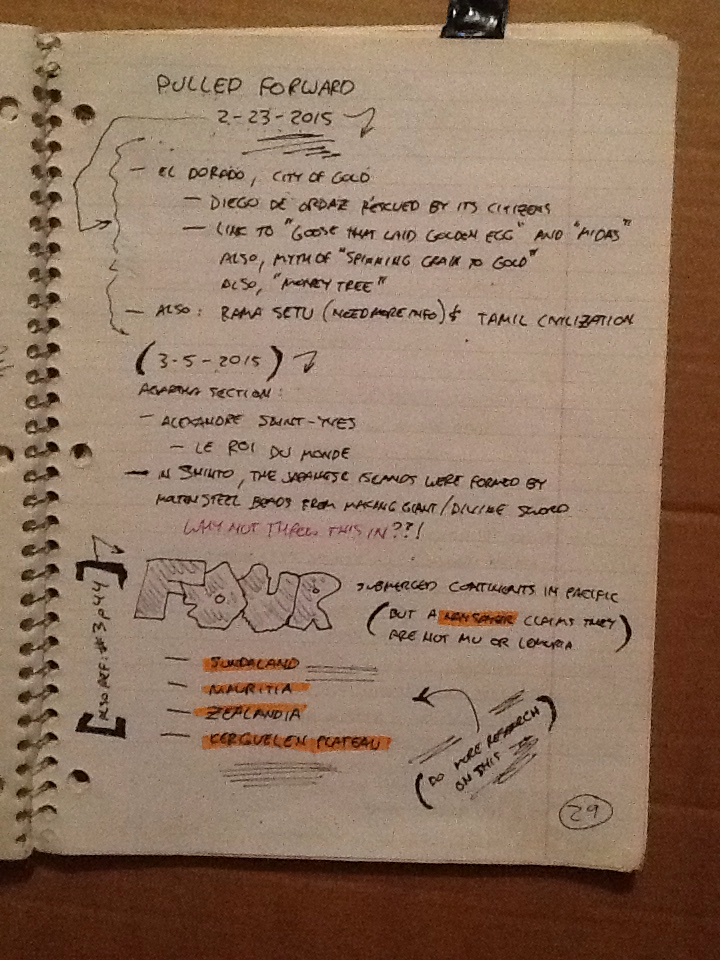 PULLED FORWARD
2-23-2015
- EL DORADO, CITY OF GOLD
- DIEGO DE ORDAZ RESCUED BY ITS CITIZENS
- LINK TO "GOOSE THAT LAID GOLDEN EGG" AND "MIDAS"
ALSO, MYTH OF "SPINNING GRAIN TO GOLD"
ALSO, "MONEY TREE"
- ALSO: RAMA SETU (NEED MORE INFO) & TAMIL CIVILIZATION
(3-5-2015)
AGARTHA SECTION:
- ALEXANDRE SAINT-YVES
- LE ROI DU MONDE
- IN SHINTO, THE JAPANESE ISLANDS WERE FORMED BY
MOLTEN STEEL BEADS FROM MAKING GIANT/DIVINE SWORD
WHY NOT THROW THIS IN??!
[ALSO REF: #3 p44]
FOUR SUBMERGED CONTINENTS IN PACIFIC
(BUT A NAYSAYER CLAIMS THEY
ARE NOT MU OR LEMURIA)
- SUNDALAND
- MAURITIA
- ZEALANDIA
- KERGUELEN PLATEAU
(DO MORE RESEARCH
ON THIS)
29